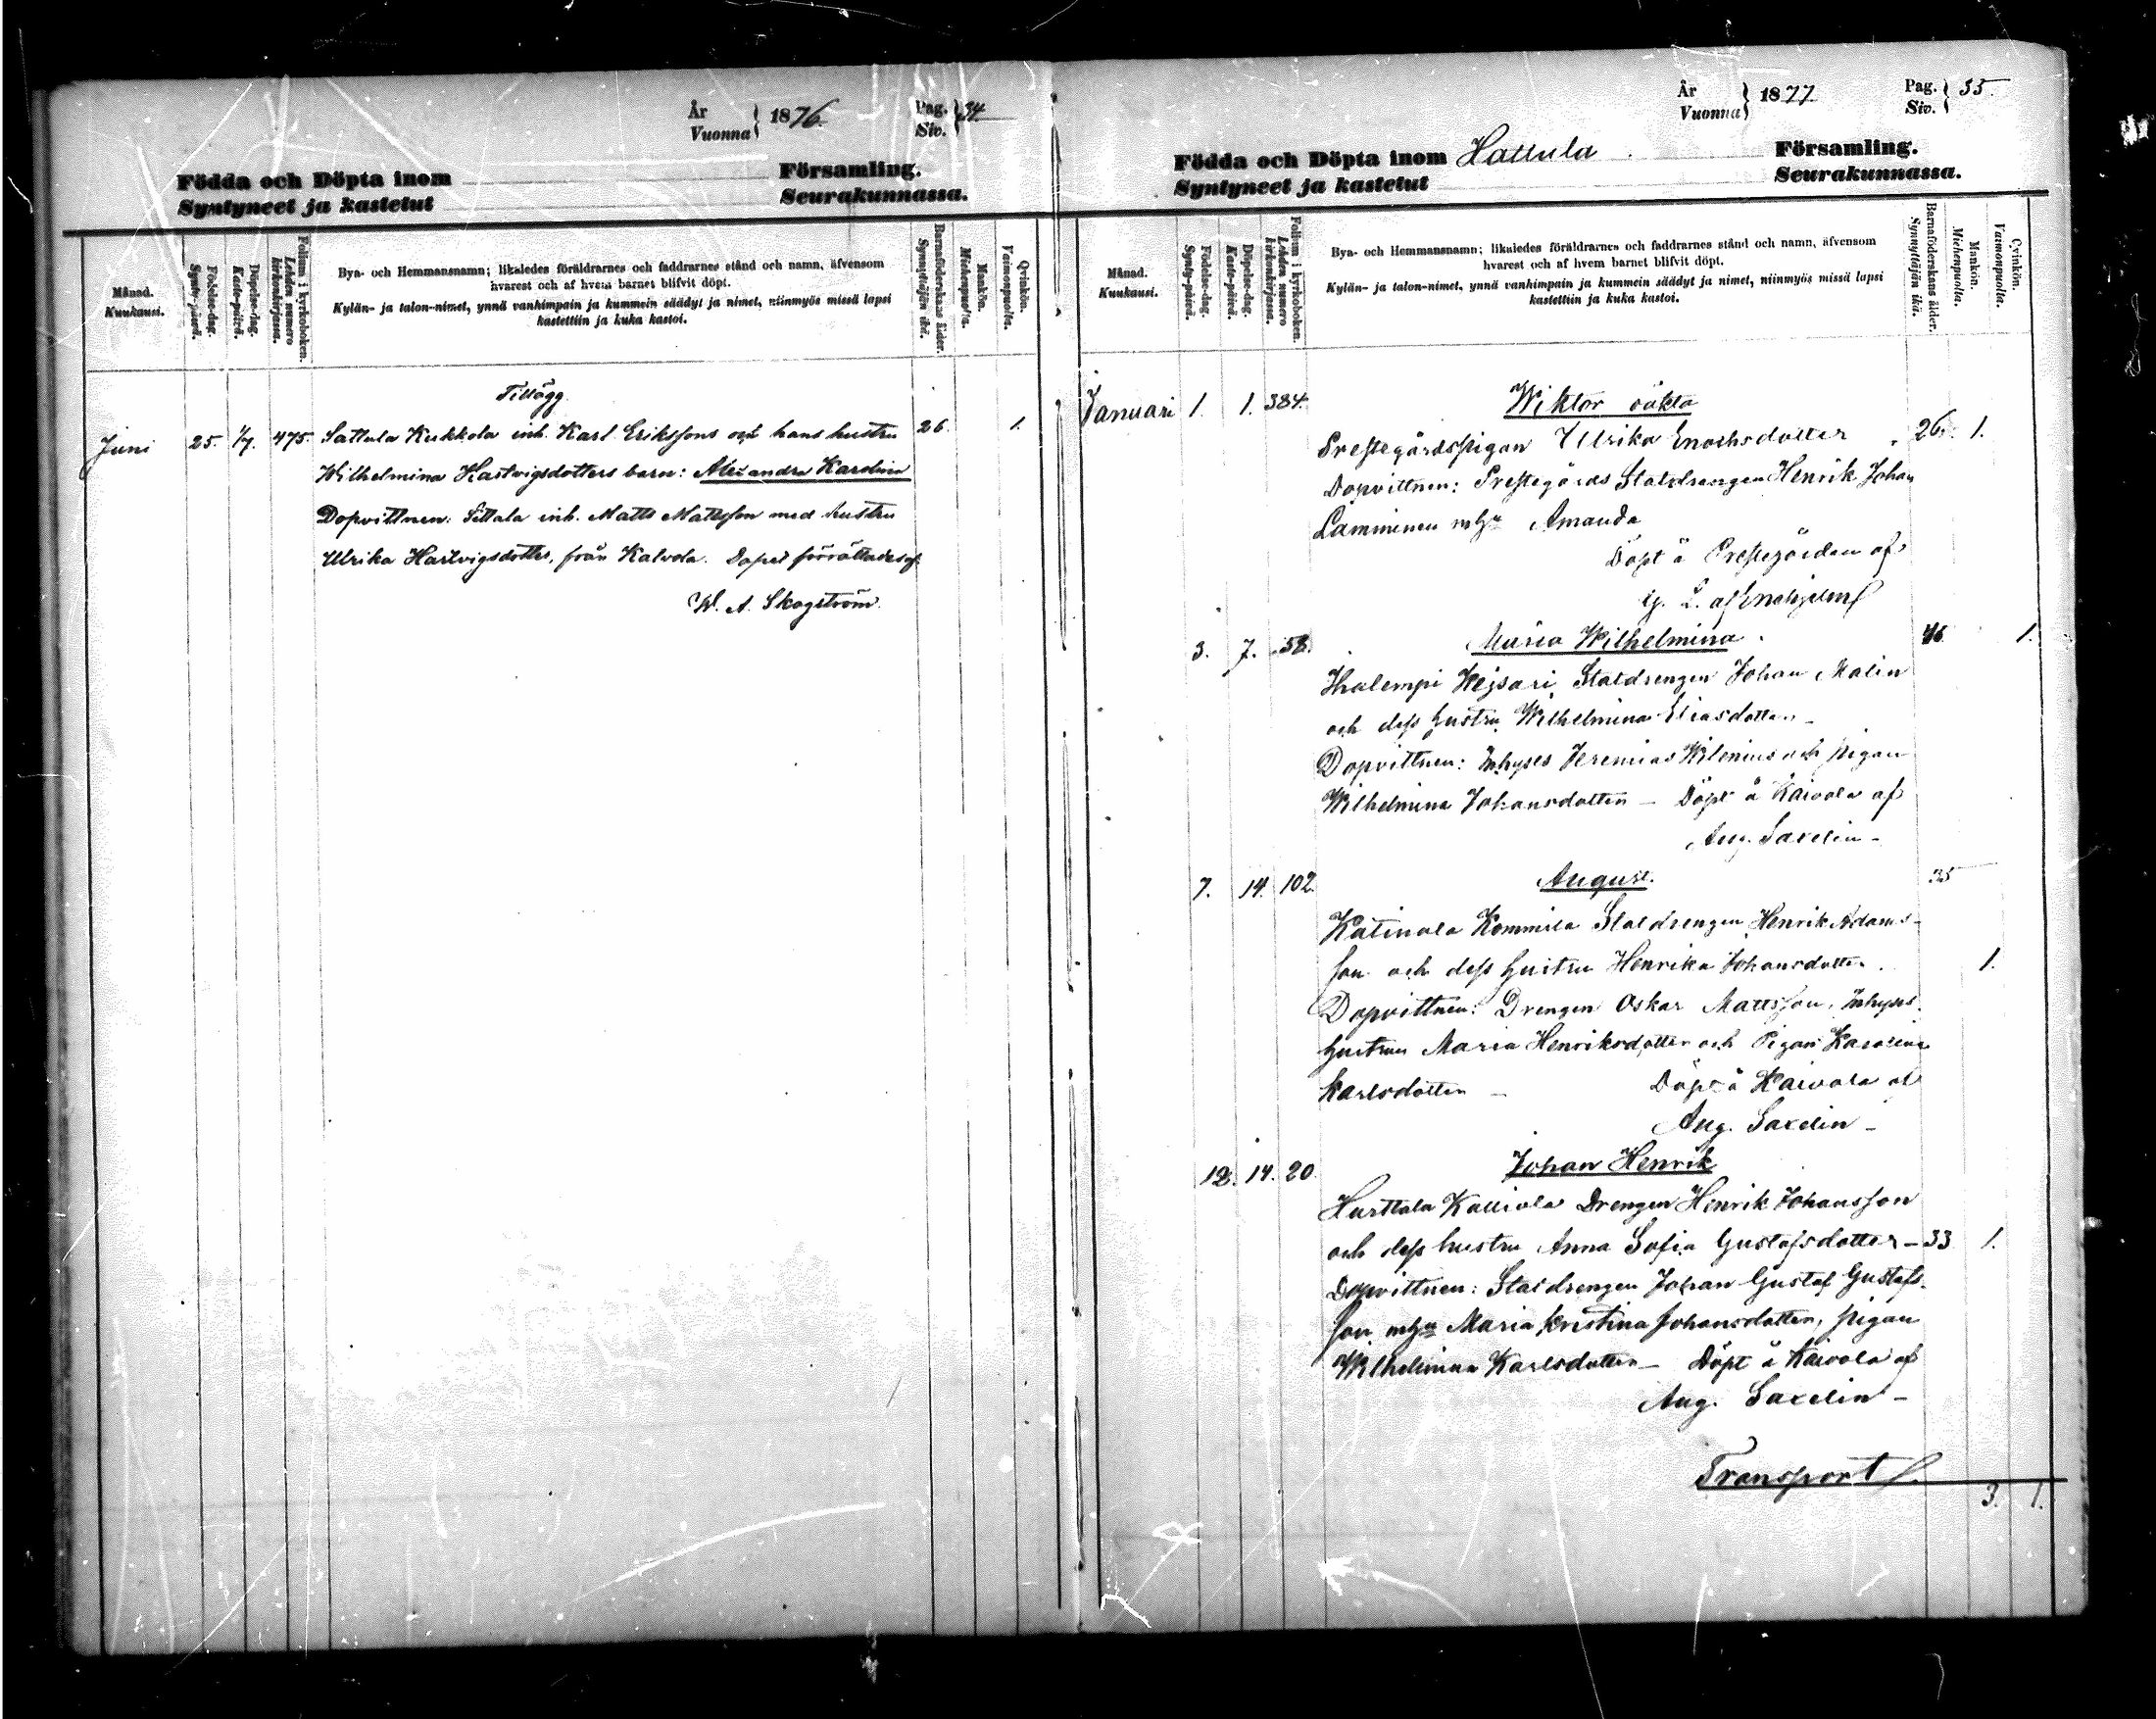 År
Vuonna } 1876.
Pag.
Siv. { 34
Födda och Döpta inom Församling.
Syntyneet ja kastetut Seurakunnassa.
Månad.
Kuukausi.
Födelse-dag.
Synty-päivä.
Döpelse-dag.
Kaste-päivä.
Folium i kyrkoboken.
Lehden numero kirkonkirjassa.
Bya- och Hemmansnamn; likaledes föräldrarnes och faddrarnes stånd och namn, äfvensom
hvarest och af hvem barnet blifvit döpt.
Kylän- ja talon-nimet, ynnä vanhimpain ja kummein säädyt ja nimet, niinmyös missä lapsi
kastettiin ja kuka kastoi.
Barnaföderskans ålder.
Synnyttäjän ikä.
Mankön.
Miehenpuolta.
Qvinkön.
Vaimonpuolta.
Tillägg
Juni 25. 1/7. 475. Sattula Kukkola inh. Karl Erikssons och hans hustru 26. 1.
Wilhelmina Hartvigsdotters barn: Alexandra Karolina
Dopvittnen: Sittala inh. Matts Mattsson med hustru
Ulrika Hartvigsdotter, från Kalvola. Dopet förrättades af
W. A. Skogström.
År
Vuonna } 1877
Pag.
Siv. { 35.
Födda och Döpta inom Hattula Församling.
Syntyneet ja kastetut Seurakunnassa.
Månad.
Kuukausi.
Födelse-dag.
Synty-päivä.
Döpelse-dag.
Kaste-päivä.
Folium i kyrkoboken.
Lehden numero kirkonkirjassa.
Bya- och Hemmansnamn; likaledes föräldrarnes och faddrarnes stånd och namn, äfvensom
hvarest och af hvem barnet blifvit döpt.
Kylän- ja talon-nimet, ynnä vanhimpain ja kummein säädyt ja nimet, niinmyös missä lapsi
kastettiin ja kuka kastoi.
Barnaföderskans ålder.
Synnyttäjän ikä.
Mankön.
Miehenpuolta.
Qvinkön.
Vaimonpuolta.
Januari 1. 1. 384. Wiktor oäkta
Prestegårdspigan Ulrika Enochsdotter 26. 1.
Dopvittnen: Prestegårds Statdrengen Henrik Johan
Lamminen Amanda
Döpt å Prestegården af
G. L. af Enehjelm
3. 7. 58. Maria Wilhelmina 46 1.
Ihalempi Hejsari Statdrengen Johan Malin
och dess hustru Wilhelmina Eliasdotter –
Dopvittnen: Inhyses Jeremias Wilenius och pigan
Wilhelmina Johansdotter – Döpt å Kaivola af
Aug. Saxelin –
7. 14. 102. August. 35
Katinala Kommila Statdrengen Henrik Adams-
son och dess hustru Henrika Johansdotter. 1.
Dopvittnen: Drengen Oskar Mattsson, Inhyses
hustrun Maria Henriksdotter och Pigan Karolina
Karlsdotter – Döpt å Kaivola af
Aug. Saxelin –
12. 14. 20. Johan Henrik
Hurttala Kalliola Drengen Henrik Johansson
och dess hustru Anna Sofia Gustafsdotter – 33 1.
Dopvittnen: Statdrengen Johan Gustaf Gustafs-
son Maria Kristina Johansdotter, pigan
Wilhelmina Karlsdotter – Döpt å Kaivola af
Aug. Saxelin –
Transport
3. 1.